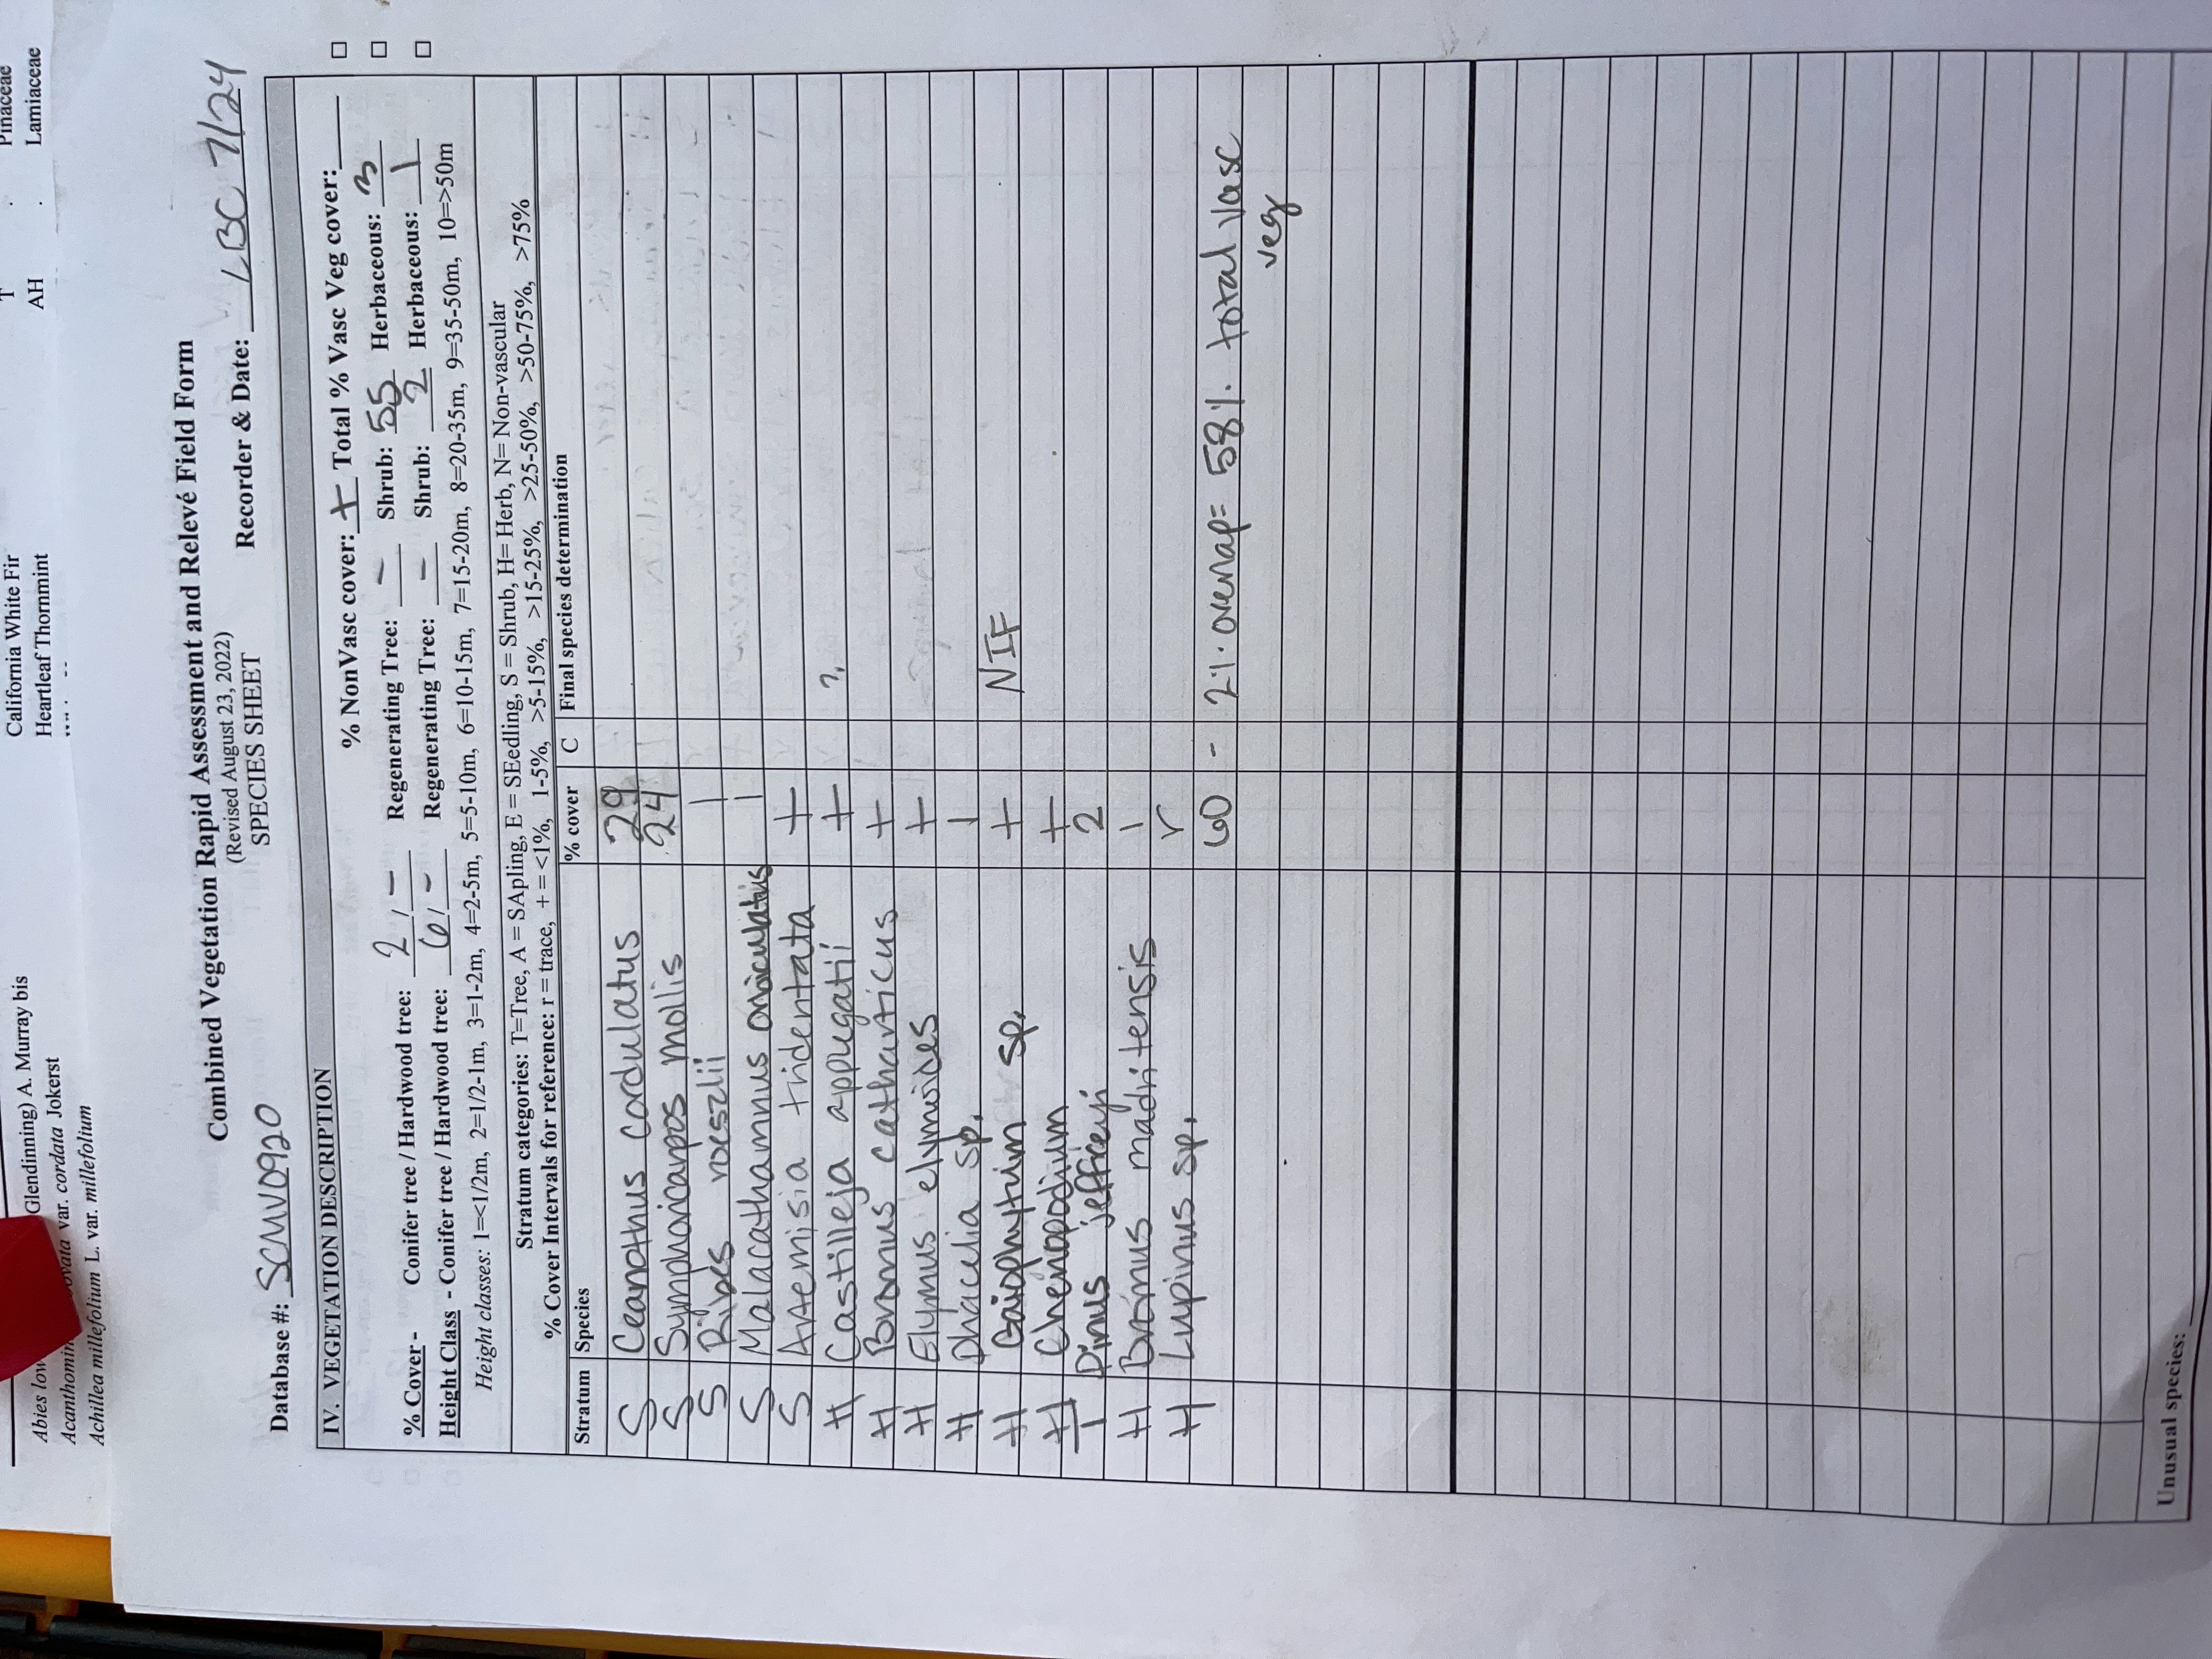 Pinaceae
T
California White Fir
Lamiaceae
AH
Heartleaf Thornmint
Abies low
Glendinning) A. Murray bis
Acanthomin
ovata var. cordata Jokerst
Achillea millefolium L. var. millefolium
Combined Vegetation Rapid Assessment and Relevé Field Form
(Revised August 23, 2022)
SPECIES SHEET
Database #: SCMV0920
Recorder & Date: LBC 7/24
IV. VEGETATION DESCRIPTION
% NonVasc cover: + Total % Vasc Veg cover:____
% Cover - Conifer tree / Hardwood tree: 2 / - Regenerating Tree: - Shrub: 55 Herbaceous: 3
Height Class - Conifer tree / Hardwood tree: 6 / - Regenerating Tree: - Shrub: 2 Herbaceous: 1
Height classes: 1=<1/2m, 2=1/2-1m, 3=1-2m, 4=2-5m, 5=5-10m, 6=10-15m, 7=15-20m, 8=20-35m, 9=35-50m, 10=>50m
Stratum categories: T=Tree, A = SApling, E = SEedling, S = Shrub, H= Herb, N= Non-vascular
% Cover Intervals for reference: r = trace, + = <1%, 1-5%, >5-15%, >15-25%, >25-50%, >50-75%, >75%
Stratum Species % cover C Final species determination
S Ceanothus cordulatus 29
S Symphoricarpos mollis 24
S Ribes roezlii 1
S Malacathamnus oriculatus 1
S Artemisia tridentata +
H Castilleja applegatii + ?
H Bromus catharticus +
H Elymus elymoides +
H Phacelia sp. 1
H Gaiophytum sp. + NIF
H Chenopodium +
T Pinus jefferyi 2
H Bromus madritensis 1
H Lupinus sp. r
60 - 2% overlap = 58% total vasc
veg
Unusual species: